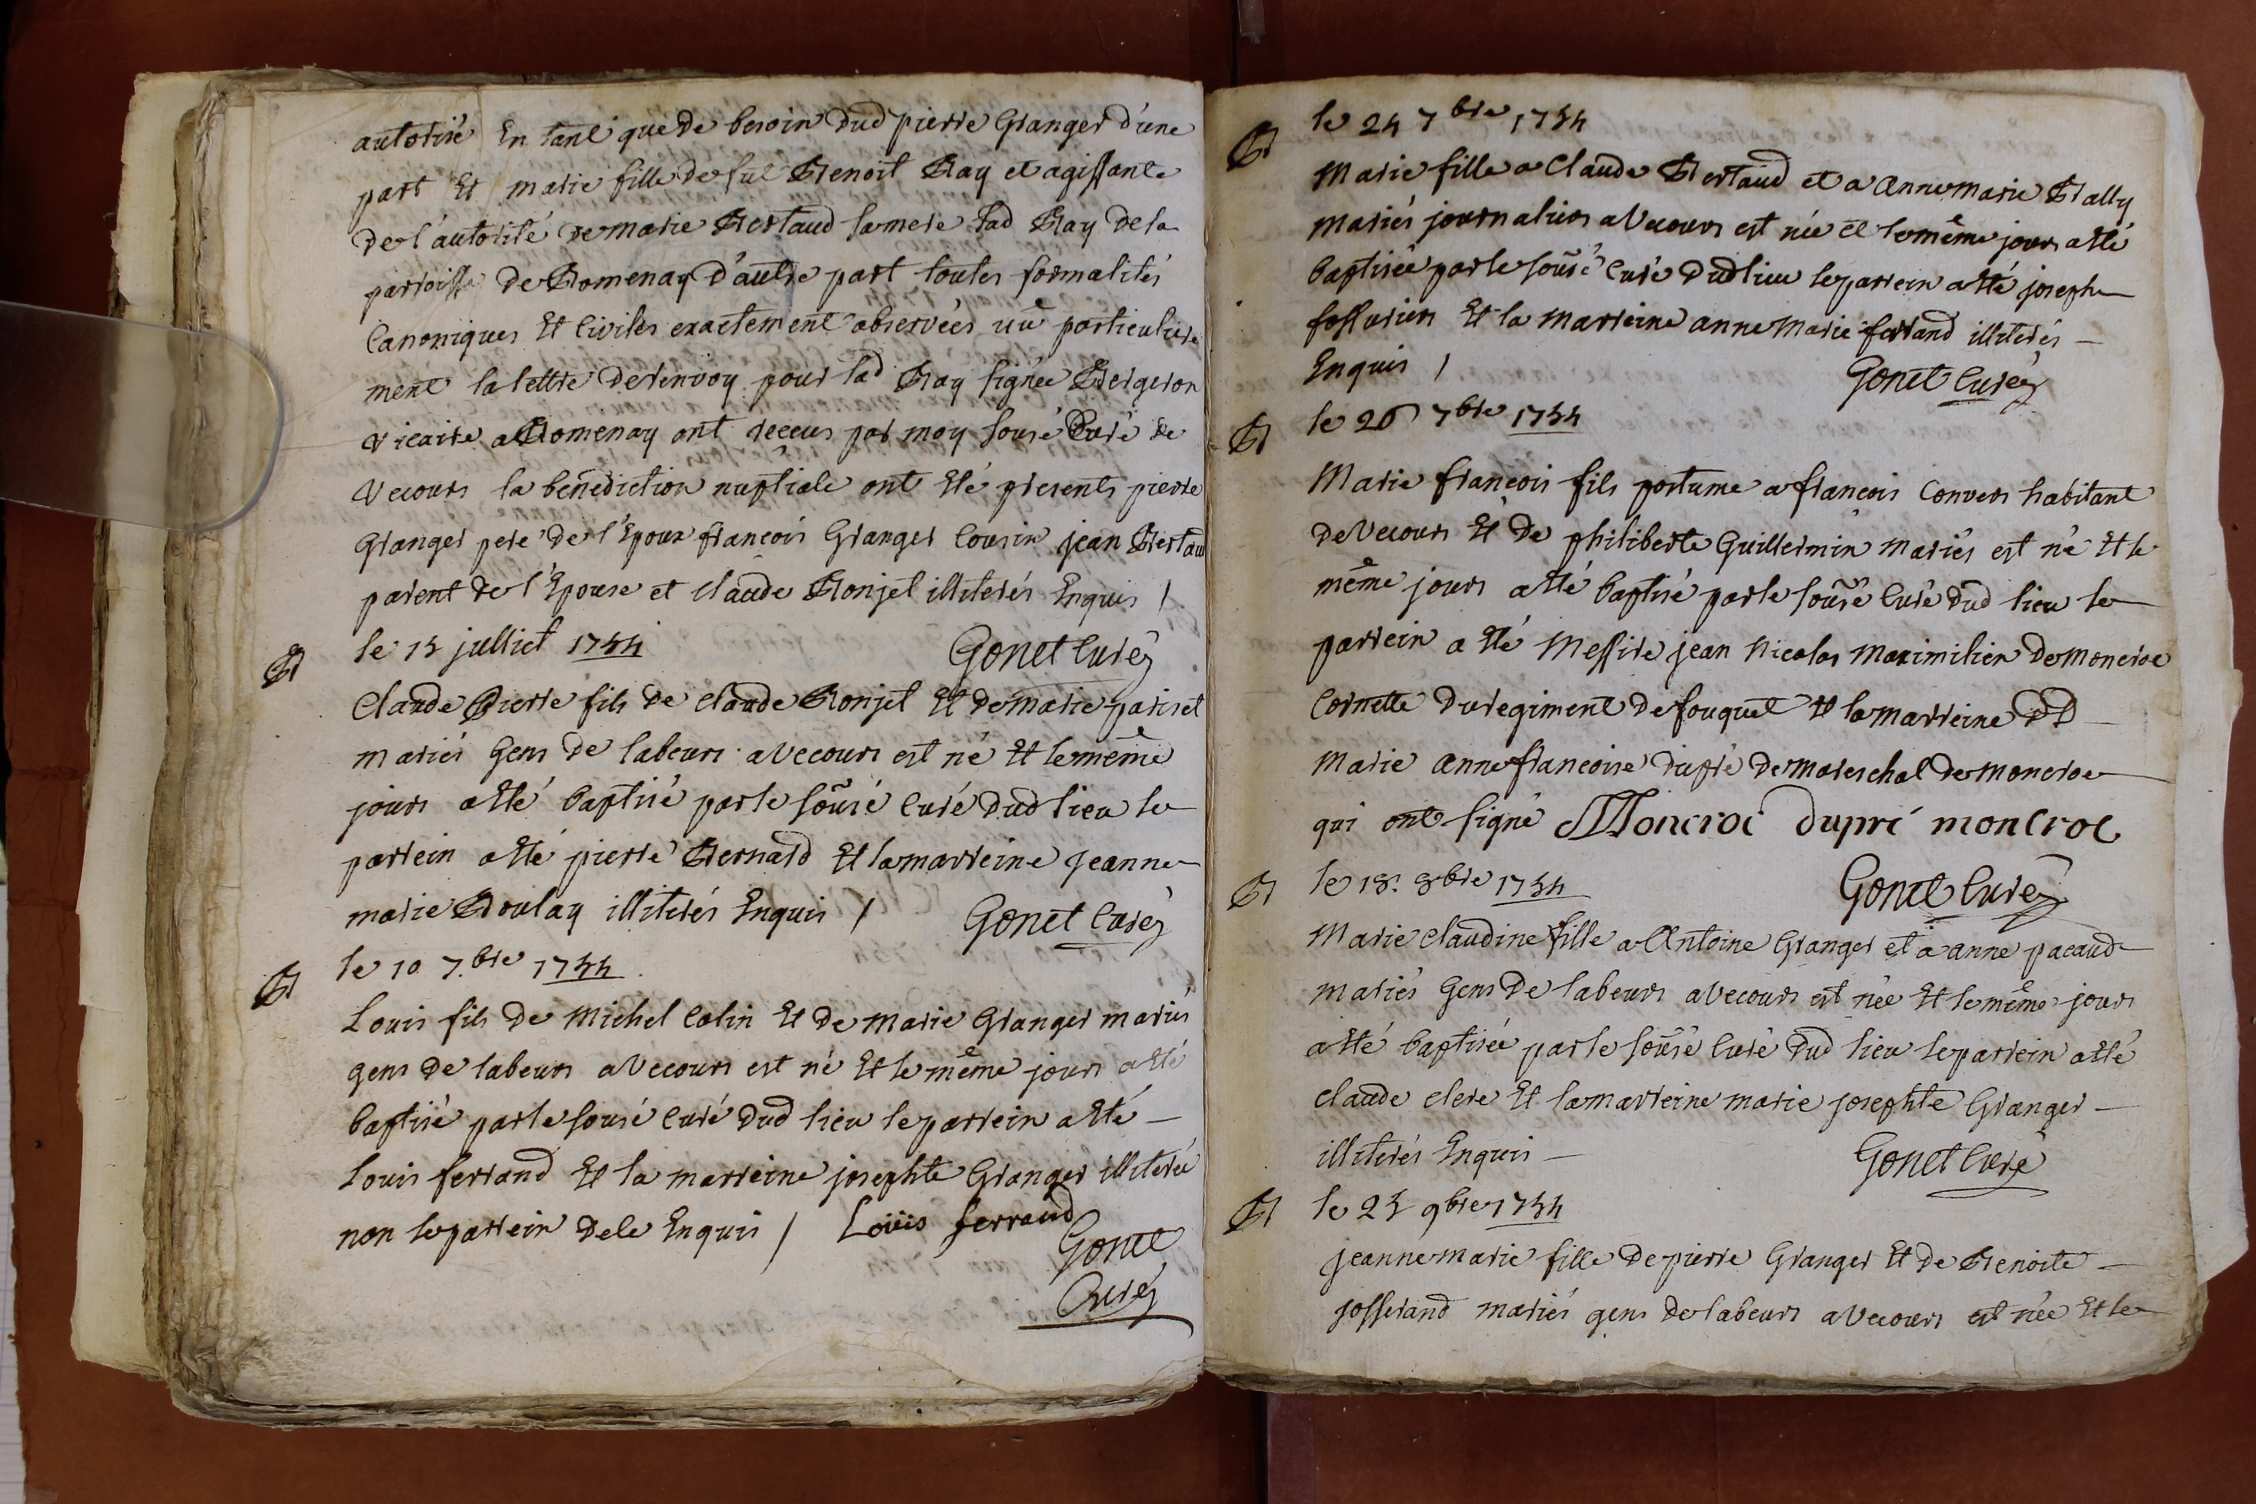 autorisé En tant que de besoin dud pierre Granger d'une
part Et marie fille de fut Benoit Bay et agissante
de l'autorité de marie Bertaud sa mere lad Bay de la
parroisse de Romenay d'autre part toutes formalités
Canoniques Et Civiles exactement observées vüe particuliere
ment la lettre de renvoy pour lad Bay signée Bergeron
vicaire a Romenay ont receus par moy sousé Curé de
Vecours la benediction nuptiale ont Eté presents pierre
Granger pere de l'Epoux francois Granger Cousin jean Bertau
parent de l'Epouse et Claude Bonjet illiterés Enquis /
Gonet Curé
B
le 15 julliet 1754
Claude Pierre fils de Claude Bonjet Et de marie pariset
mariés Gens de labeurs a Vecours est né Et le même
jours a Eté baptisé par le sousé Curé dud lieu le
parrein a Eté pierre Bernard Et la marreine Jeanne
marie Boulay illiterés Enquis /
Gonet Curé
B
le 10 7.bre 1754
Louis fils de Michel Colin Et de Marie Granger mariés
gens de labeurs a Vecours est né Et le même jours a Eté
baptisé par le sousé Curé dud lieu le parrein a Eté
Louis ferrand Et la marreine josephte Granger illiterée
non le parrein de le Enquis / Loüis ferrand
Gonet
Curé
B
le 24 7bre 1754
Marie fille a Claude Bertaud et a Anne marie Bally
mariés journaliers a Vecours est née et le même jours a Eté
baptisée par le sousé Curé dud lieu le parrein a Eté joseph
fossurier Et la marreine anne Marie ferrand illiterés
Enquis /
Gonet Curé
B
le 26 7bre 1754
Marie francois fils postume a francois Convers habitant
de Vecours Et De philiberte Guillermin Mariés est né Et le
même jours a Eté baptisé par le sousé Curé dud lieu le
parrein a Eté Messire jean Nicolas Maximilien de Moncroc
Cornette du regiment de fouquet Et la marreine DD
Marie Anne francoise dupré de mareschal de Moncroc
qui ont signé Moncroc dupré moncroc
Gonet Curé
B
le 18. 8bre 1754
Marie Claudine fille a Antoine Granger et a anne pacaud
mariés Gens de labeurs a Vecours est née Et le même jours
a Eté baptisée par le sousé Curé dud lieu le parrein a Eté
Claude Clere Et la marreine marie josephte Granger
illiterés Enquis
Gonet Curé
B
le 25 9bre 1754
jeanne marie fille de pierre Granger Et de Benoite
josserand mariés gens de labeurs a Vecours est née Et le